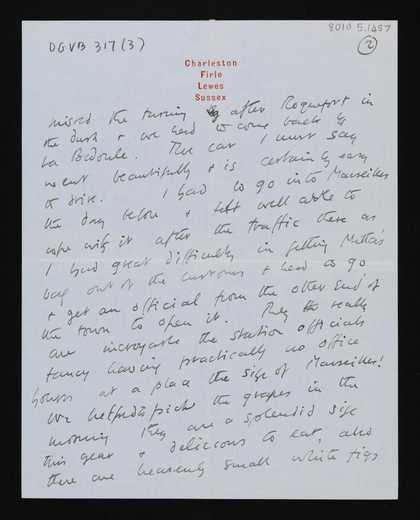 8010.5.1457
DGVB 317(3)
2
Charleston
Firle
Lewes
Sussex
missed the turning after Roquefort in
the dusk + we had to come back by
La Bédoule. The car I must say
went beautifully + is certainly easy
to drive. I had to go into Marseilles
the day before + felt well able to
cope with it after the traffic there as
I had great difficulty in getting
bag out of the customs + had to go
+ get an official from the other end of
the town to open it. They really
are incroyable the station officials
fancy having practically no office
hours at a place the size of Marseilles!
We helped pick the grapes in the
morning they are a splendid size
this year + delicious to eat, also
there are heavenly small white figs